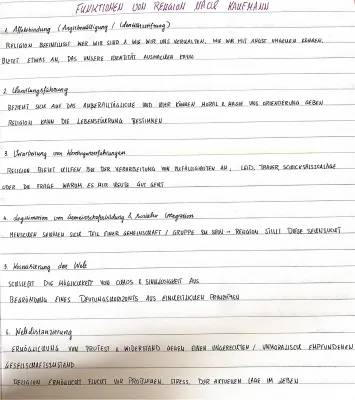 FUNKTIONEN VON RELIGION NACH KAUFMANN
1. Affektbindung (Angstbewältigung / Identitätsstiftung)
RELIGION BEEINFLUSST WER WIR SIND & WIE WIR UNS VERHALTEN, WIE WIR MIT ANGST UMGEHEN KÖNNEN.
BIETET ETWAS AN, DAS UNSERE IDENTITÄT AUSMACHEN KANN
2. Handlungsführung
BEZIEHT SICH AUF DAS AUßERALLTÄGLICHE UND KÖNNEN MORAL & MAGIE UNS ORIENTIERUNG GEBEN
RELIGION KANN DIE LEBENSFÜHRUNG BESTIMMEN
3. Verarbeitung von Kontingenzerfahrungen
RELIGION BIETET HILFEN BEI DER VERARBEITUNG VON ZUFÄLLIGKEITEN AN, LEID, TRAUER, SCHICKSALSSCHLÄGE
ODER DIE FRAGE WARUM ES MIR HEUTE GUT GEHT
4. Legitimation von Gemeinschaftsbildung & sozialer Integration
MENSCHEN SEHNEN SICH TEIL EINER GEMEINSCHAFT / GRUPPE ZU SEIN → RELIGION STILLT DIESE SEHNSUCHT
5. Kosmisierung der Welt
SCHLIEßT DIE MÖGLICHKEIT VON CHAOS & SINNLOSIGKEIT AUS
BEGRÜNDUNG EINES DEUTUNGSHORIZONTS AUS EINHEITLICHEN PRINZIPIEN
6. Weltdistanzierung
ERMÖGLICHUNG VON PROTEST & WIDERSTAND GEGEN EINEN UNGERECHTEN / UNMORALISCH EMPFUNDENEN
GESELLSCHAFTSZUSTAND
RELIGION ERMÖGLICHT FLUCHT VOR PROBLEMEN, STRESS, DER AKTUELLEN LAGE IM LEBEN